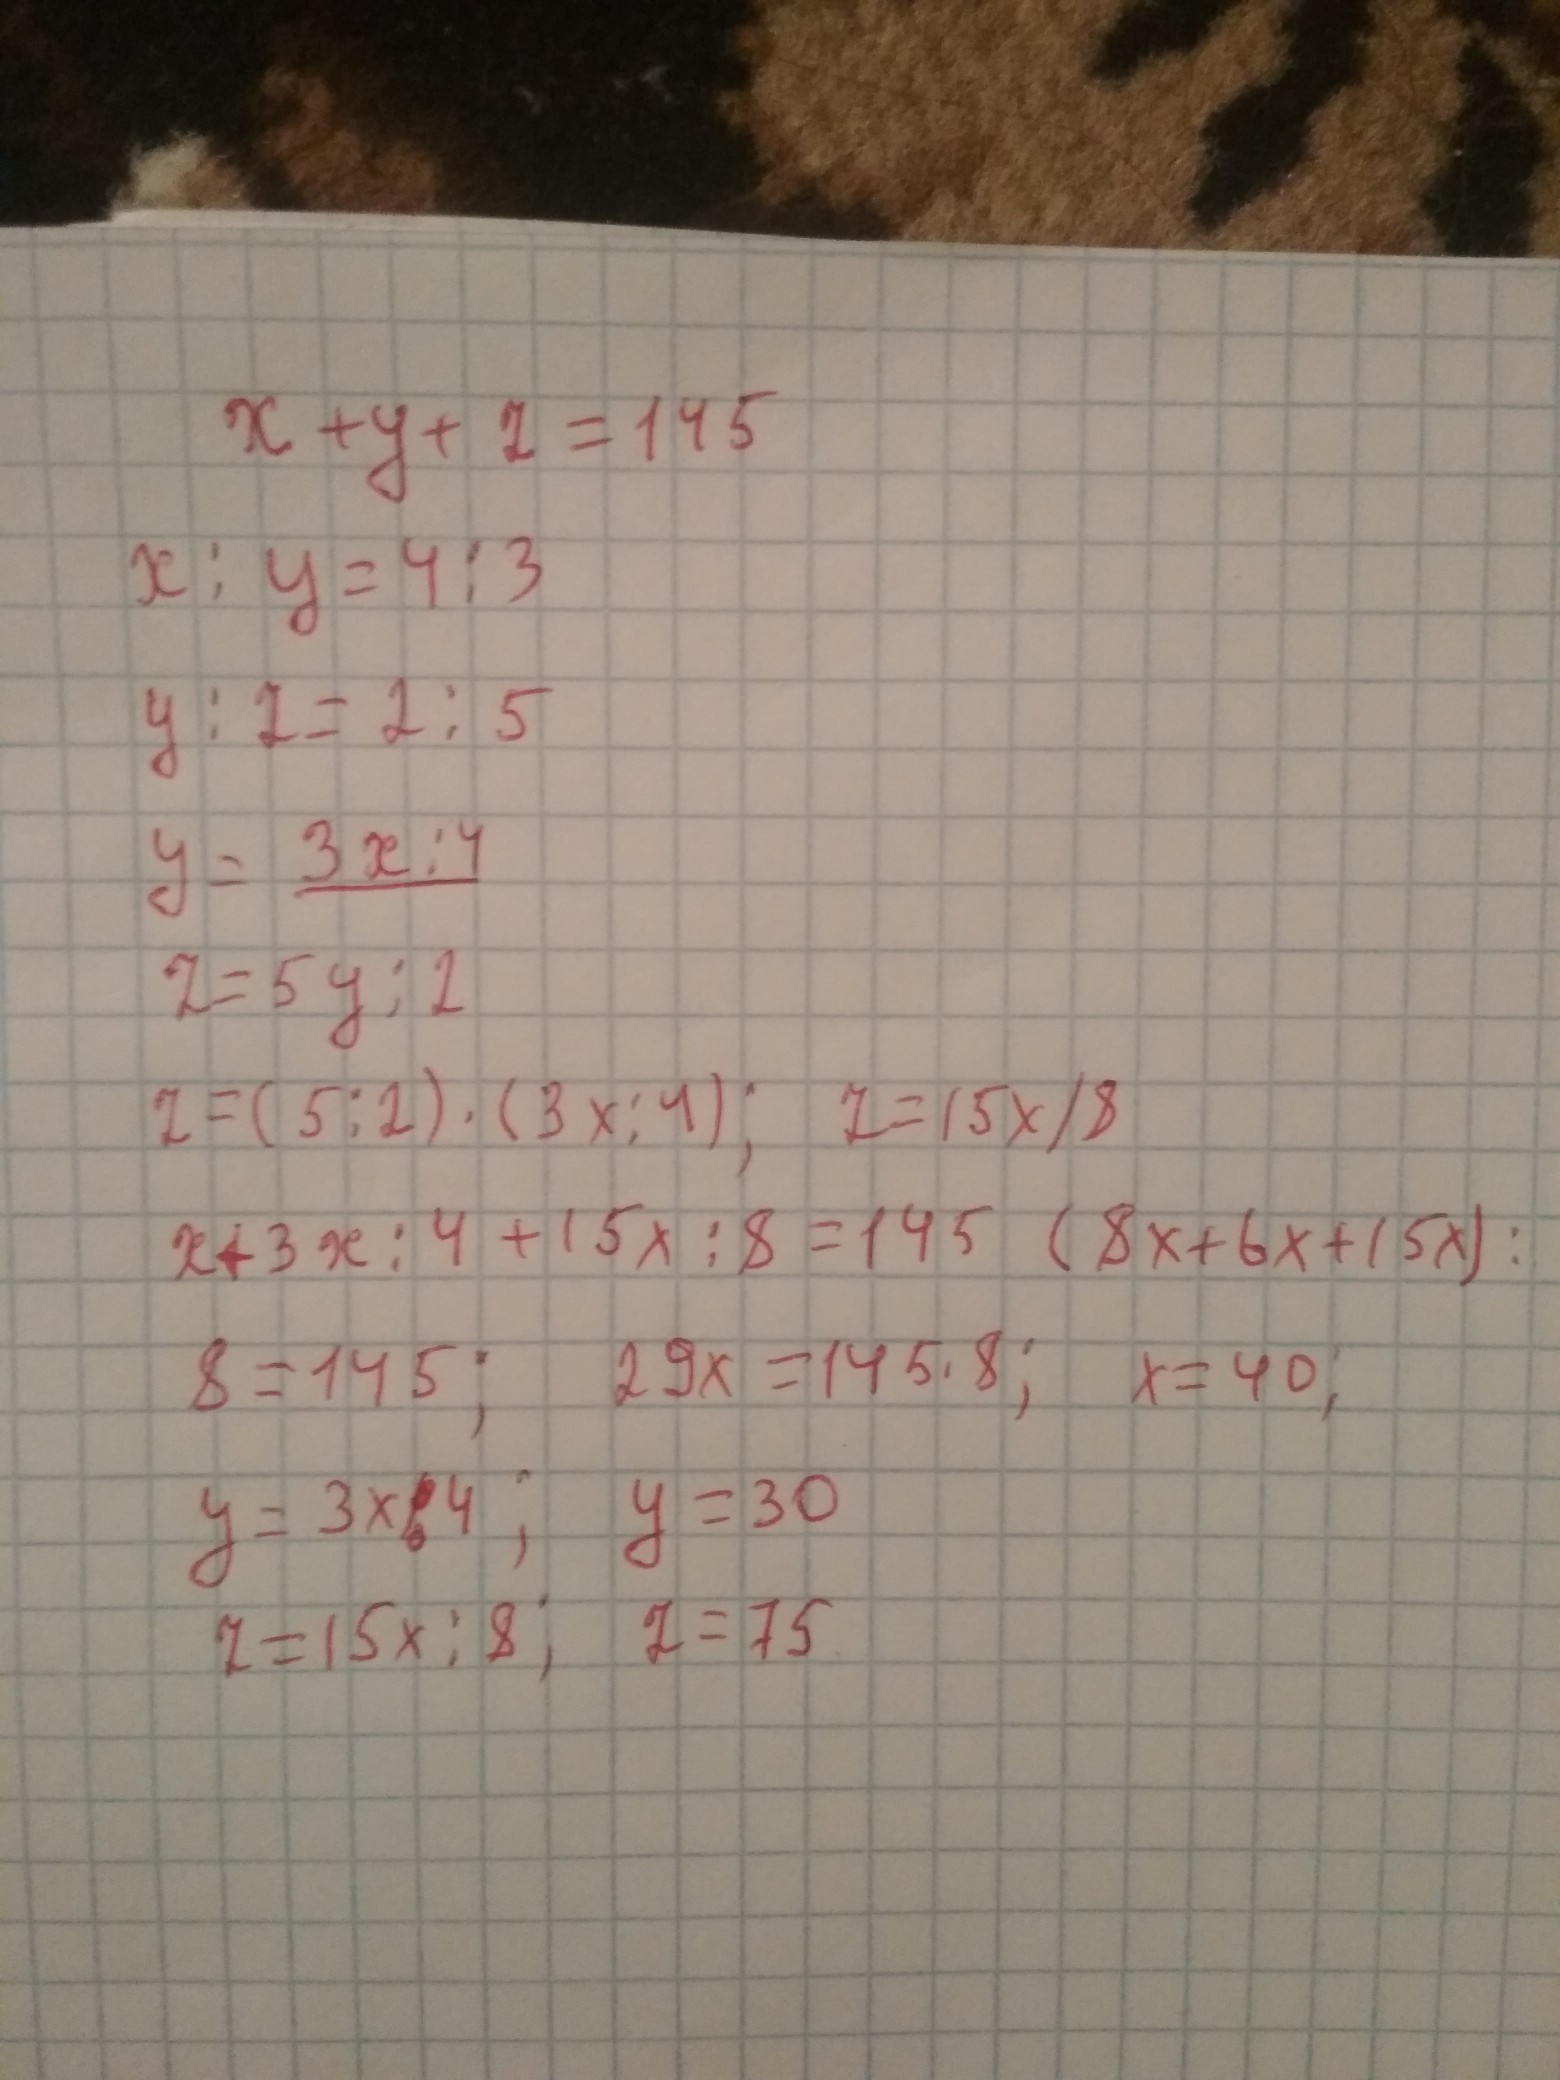 x + y + z = 145
x : y = 4 : 3
y : z = 2 : 5
y = 3x : 4
z = 5y : 2
z = (5 : 2) · (3x : 4); z = 15x/8
x + 3x : 4 + 15x : 8 = 145 (8x + 6x + 15x) :
8 = 145; 29x = 145 · 8; x = 40;
y = 3x : 4; y = 30
z = 15x : 8; z = 75